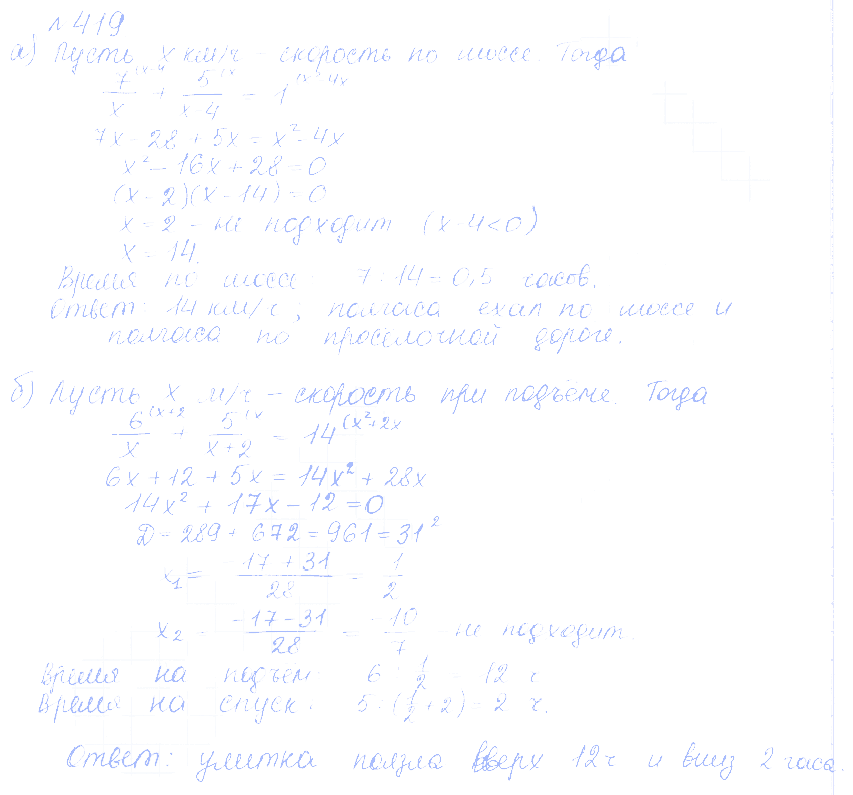 л 419
а) Пусть x км/ч – скорость по шоссе. Тогда
7/x + 5/(x-4) = 1
7x - 28 + 5x = x² - 4x
x² - 16x + 28 = 0
(x - 2)(x - 14) = 0
x = 2 - не подходит (x-4<0)
x = 14.
Время по шоссе: 7 : 14 = 0,5 часов.
Ответ: 14 км/ч; полчаса ехал по шоссе и
полчаса по проселочной дороге.
б) Пусть x м/ч – скорость при подъеме. Тогда
6/x (x+2 + 5/(x+2) (x = 14 (x²+2x
6x + 12 + 5x = 14x² + 28x
14x² + 17x - 12 = 0
Д = 289 + 672 = 961 = 31²
x₁ = (-17 + 31)/28 = 1/2
x₂ = (-17 - 31)/28 = -10/7 - не подходит.
Время на подъем: 6 : 1/2 = 12 ч
Время на спуск: 5 : (1/2 + 2) = 2 ч.
Ответ: улитка ползла вверх 12 ч и вниз 2 часа.